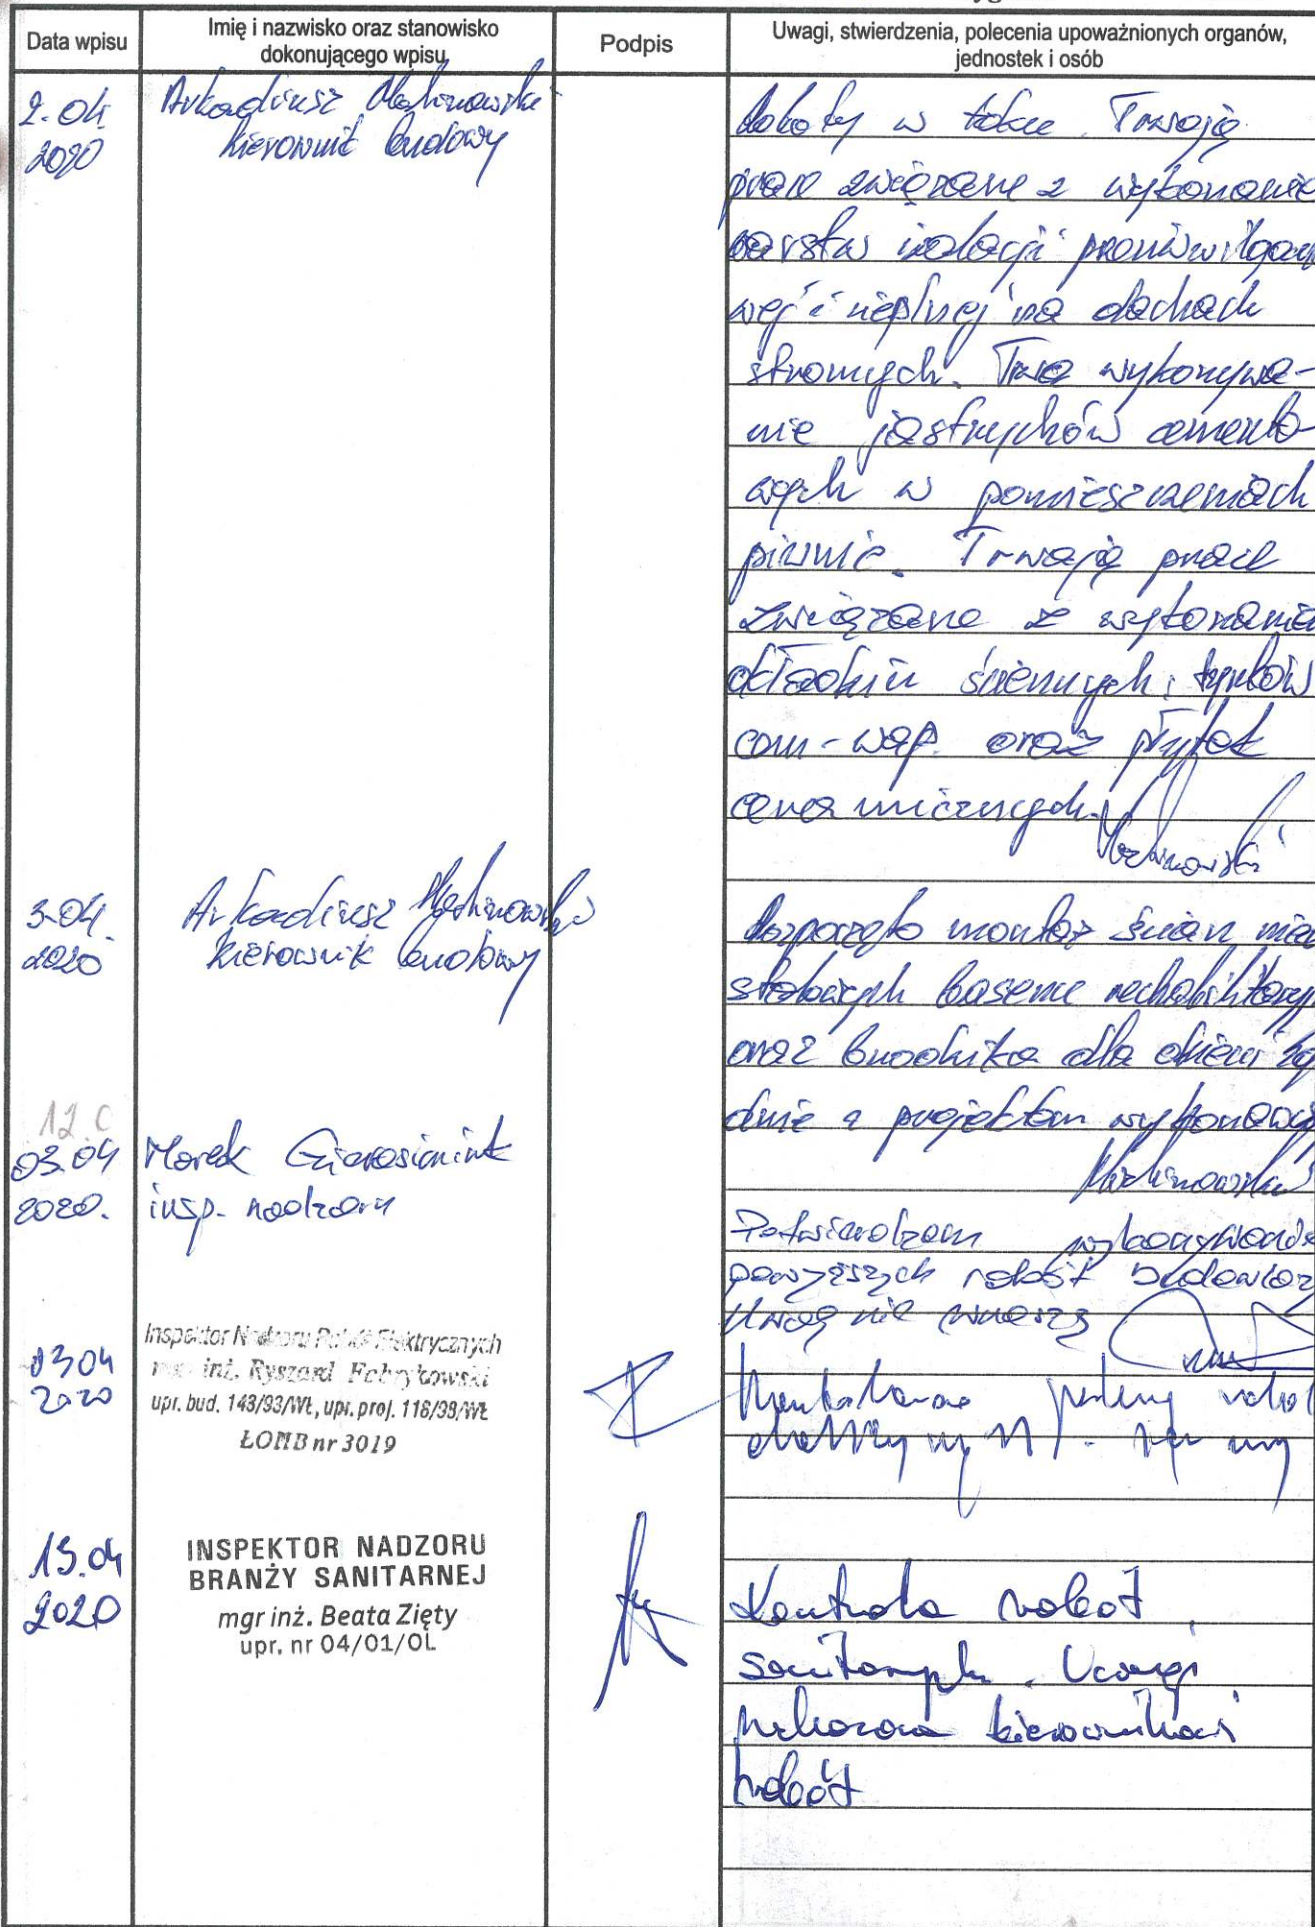 Data wpisu
Imię i nazwisko oraz stanowisko
dokonującego wpisu
Podpis
Uwagi, stwierdzenia, polecenia upoważnionych organów,
jednostek i osób
2.04.
2020
Arkadiusz Malinowski
kierownik budowy
Roboty w toku. Trwają
prace związane z wykonanie
warstw izolacji przeciwwilgocio
wej i cieplnej na dachach
stromych. Trwa wykonywa-
nie jastrychów cemento-
wych w pomieszczeniach
piwnic. Trwają prace
związane z wykonanie
okładzin ściennych, tynków
cem-wap. oraz płytek
ceramicznych.
3.04.
2020
Arkadiusz
kierownik budowy
Rozpoczęto montaż ścian nie
stalowych basenu rehabilitacyj
oraz brodzika dla dzieci zg
dnie z projektem wykonawcz
12.C
03.04
2020.
Marek
insp. nadzoru
Potwierdzam wykonywanie
powyższych robót budowlany
Uwag nie wnoszę
03 04
2020
Inspektor Nadzoru Robót Elektrycznych
mgr inż. Ryszard Fabrykowski
upr. bud. 148/93/WŁ, upr. proj. 118/98/WŁ
ŁOIIB nr 3019
13.04
2020
INSPEKTOR NADZORU
BRANŻY SANITARNEJ
mgr inż. Beata Zięty
upr. nr 04/01/OL
Kontrola robót
sanitarnych. Uwagi
przekazano kierownikowi
robót